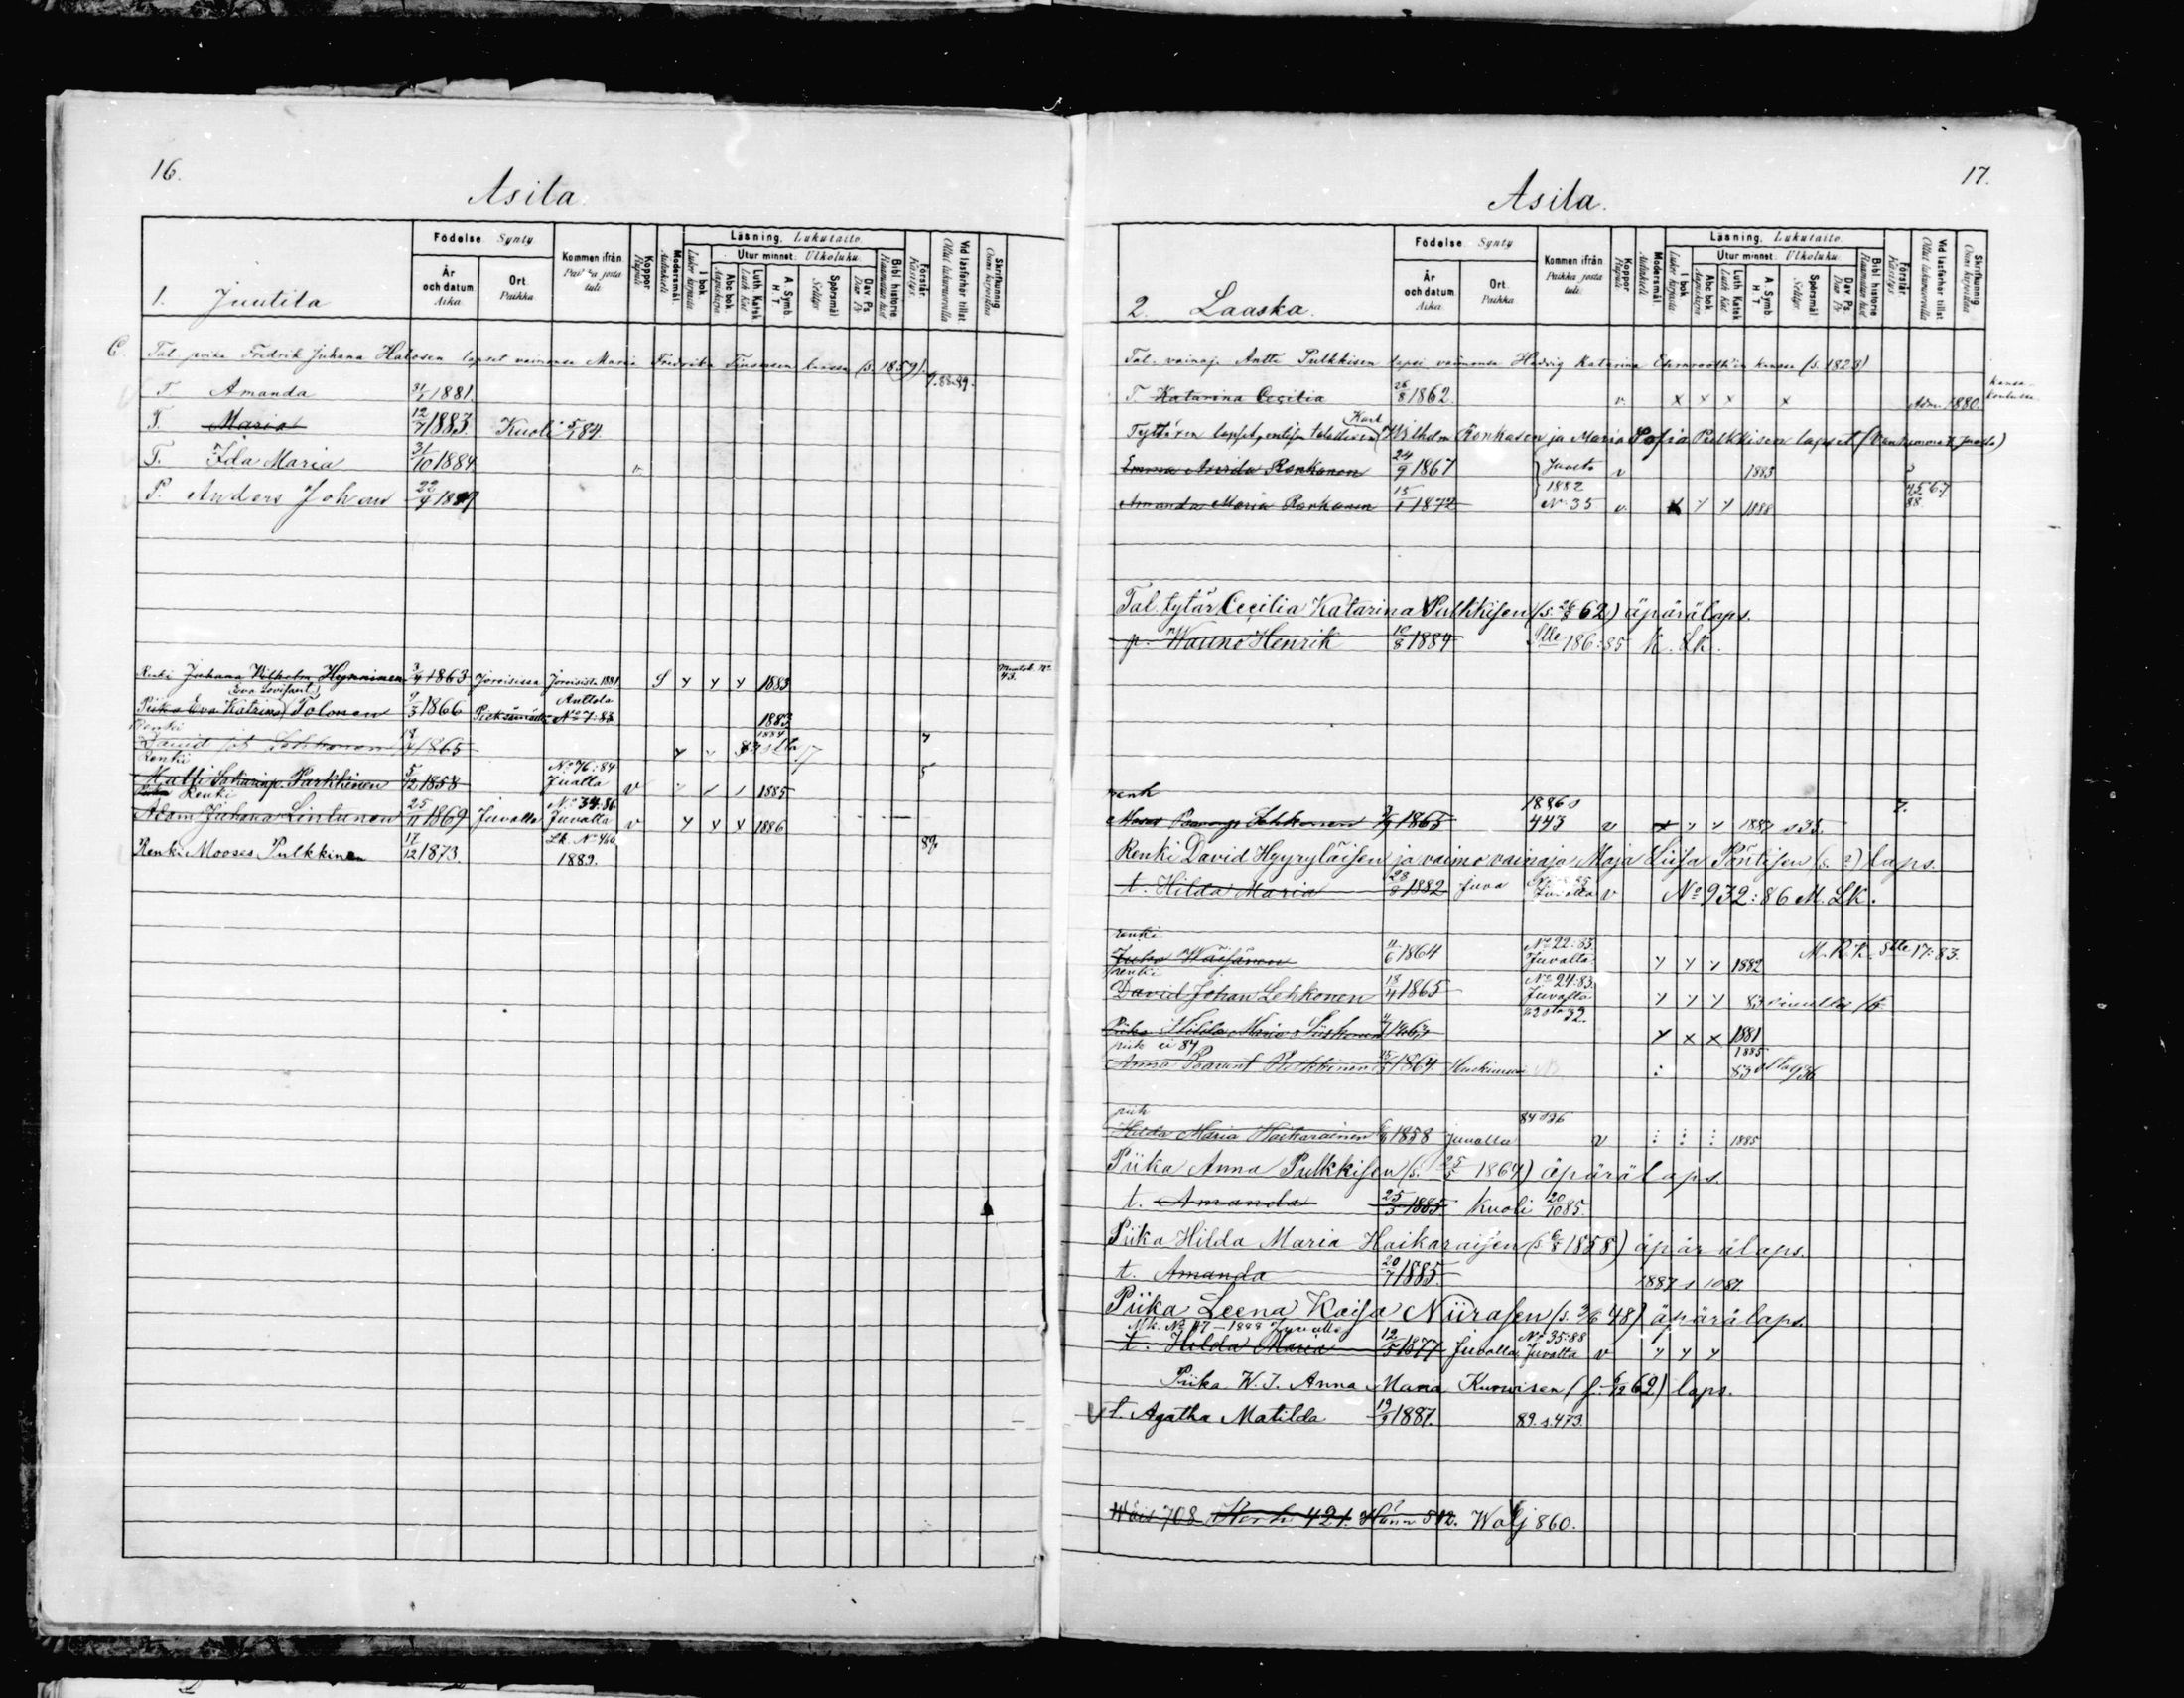 16.
Asila
1. Juutila
Födelse. Synty.
År och datum Aika.
Ort. Paikka
Kommen ifrån Paikka josta tuli
Koppor Rupuli
Modersmål Äidinkieli
Läsning. Lukutaito.
I bok Luku kirjasta
Utur minnet. Ulkoluku
Abc bok Aapiskirja
Luth Katek Luth Kat
A. Symb. H. T
Spörsmål Selitys
Dav. Ps Daw Ps
Bibl historie
Förstår Käsitys
Vid läsförhör tillst. Ollut lukukunnailla
Skrifkunnig Osaa kirjoittaa
C. Tal. poika Fredrik Juhana Halosen lapset vaimonsa Maria Fredrika kanssa (s. 1859).
T. Amanda 31/5 1881. 7.88.89.
T. Maria 12/7 1883. Kuoli 5/7 84.
T. Ida Maria 31/10 1884 v.
P. Anders Johan 22/9 1887
Renki Juhana Wilhelm Hynninen 3/4 1863 Joroisissa Joroisista 1881 S y y y 1883 43.
Eva Lovisant.
Piika Eva Katrina Tolonen 9/3 1866 Pieksämäellä Anttola No 7:83 1883
Renki
David Joh Lehkonen 18/4 1865 1884 4
Renki
Matti Sakarinp. Parkkinen 5/12 1858 No 76:84 Jualla v 1885 5
Renki
Adam Juhana Lintunen 25/11 1869 Juvalla No 34:86 Juvalla v y y y 1886
Renki Mooses Pulkkinen 17/12 1873 Lk. No 466 1889. 89
17.
Asila.
2. Laaska.
Födelse Synty
År och datum Aika.
Ort. Paikka
Kommen ifrån Paikka josta tuli.
Koppor Rupuli
Modersmål Äidinkieli
Läsning. Lukutaito.
I bok Luku kirjasta
Utur minnet: Ulkoluku.
Abc bok Aapiskirja
Luth Katek Luth Kat
A. Symb. H T
Spörsmål Selitys
Dav. Ps. Daw Ps
Bibl historie
Förstår Käsitys
Vid läsförhör tillst. Ollut lukukunnailla
Skrifkunnig Osaa kirjoittaa
Tal. vainaja Antti Pulkkisen lapsi vaimonsa Hedvig Katarina Ehrnrooth'in kanssa (s. 1823)
T. Katarina Cecilia 26/8 1862. v. x x x x Adm. 1880. kansakoulussa
Tyttären lapset, entisen talollisen Karl Wilhelm Ronkasen ja Maria Sofia Pulkkisen lapset (Vanhemmat Juvalla)
Emma Ronkanen 24/9 1867 Juvalta v 1883
Amanda Maria Ronkanen 15/1 1872 1882 No 35 v. x y y 1888 88
Tal. tytär Cecilia Katarina Pulkkisen (s. 26/8 62) äpärälaps.
p. Wäinö Henrik 10/8 1884 Slle 186:85 K. Lk.
renk
Moses Paavonp Lehkonen 7/9 1865 1886 s 443 v x y y 1882 s 35. 7.
Renki David Hyyryläisen ja vaimo vainaja Maja Liisa Pöntisen (s. ?) laps.
t. Hilda Maria 28/8 1882 Juva Juvalta v No 932:86 M. Lk.
renki
Juho Wäisänen 11/6 1864 No 22:83. Juvalta y y y 1882 M. R. K. Slle 17:83.
renki
David Johan Lehkonen 18/4 1865 No 24:83. Juvalta y y y 83
Piika Hilda Maria 1863 82 sta 32. y x x 1881
piik ei 84
Anna Paavont Pulkkinen 25/5 1864 1885 83
piik
Hilda Maria Haikarainen 6/8 1858 Juvalla 84 s 36 v : : : 1885
Piika Anna Pulkkisen (s. 25/5 1864) äpärälaps.
t. Amanda 25/5 1885 Kuoli 20/10 85.
Piika Hilda Maria Haikaraisen (s. 6/8 1858) äpärälaps.
t. Amanda 20/7 1885. 1887 s 1081.
Piika Leena Kaisa Niirasen (s. 3/6 48) äpärälaps.
Mk. No 117 - 1888 Juvalle
t. Hilda Maria 12/5 1877 Juvalla No 35:88 Juvalta v y y y
Piika W. I. Anna Maria Kurvisen (s. 6/12 62) laps.
t. Agatha Matilda 19/9 1887. 89. s. 473.
Wäis 708 421. Hänn 512. Walj 860.